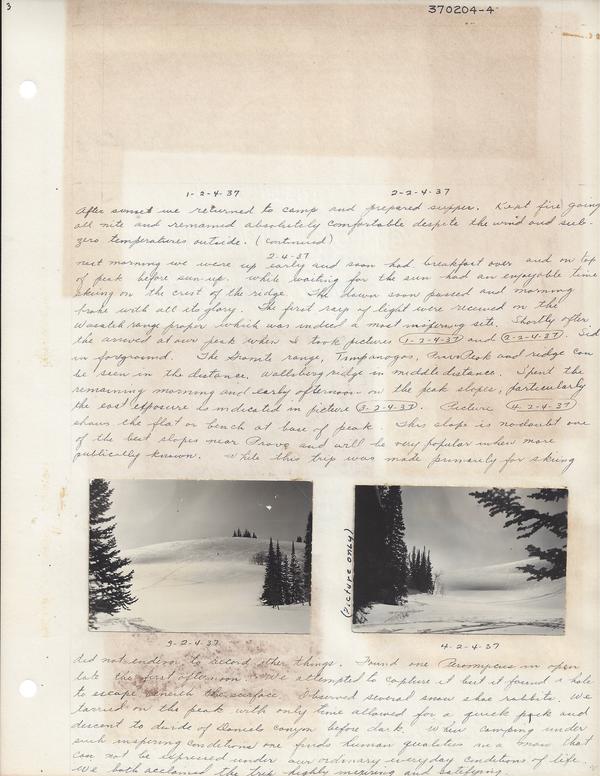 3
370204-4
1-2-4-37 2-2-4-37
After sunset we returned to camp and prepared supper. Kept fire going
all nite and remained absolutely comfortable despite the wind and sub-
zero temperatures outside. (Continued)
2-4-37
next morning we were up early and soon had breakfast over and on top
of peak before sun-up. While waiting for the sun had an enjoyable time
skiing on the crest of the ridge. The dawn soon passed and morning
broke with all its glory. The first rays of light were received on the
Wasatch range proper which was indeed a most inspiring site. Shortly after
the arrived at our peak when I took pictures 1-2-4-37 and 2-2-4-37. Sid
in forground. The Granite range, Timpanogos, Provo Peak and ridge can
be seen in the distance. Wallsberg ridge in middle distance. Spent the
remaining morning and early afternoon on the peak slopes, particularly
the east exposure as indicated in picture 3-2-4-37. Picture 4-2-4-37
shows the flat or bench at base of peak. This slope is no doubt one
of the best slopes near Provo and will be very popular when more
publically known. While this trip was made primarily for skiing
(Picture only)
3-2-4-37 4-2-4-37
did not to record other things. Found one in open
late the first afternoon. We attempted to capture it but it found a hole
to escape beneath the surface. Observed several snow shoe rabbits. We
tarried on the peak with only time allowed for a quick pack and
descent to divide of Daniels canyon before dark. When camping under
such inspiring conditions one finds human qualities in a man that
can not be expressed under our ordinary everyday conditions of life.
We both acclaimed the trip highly inspiring and satifying.